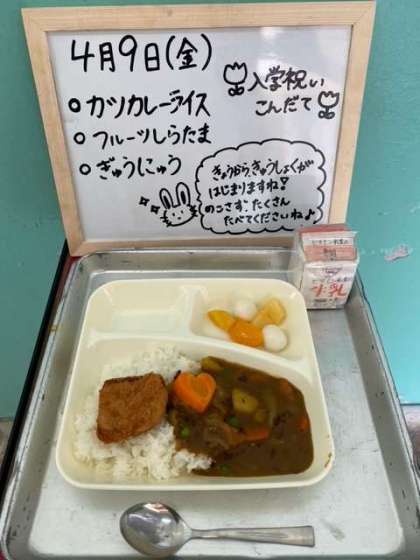 4月9日(金)
入学祝い
こんだて
○カツカレーライス
○フルーツしらたま
○ぎゅうにゅう
きょうから、きゅうしょくが
はじまりますね!
のこさず、たくさん
たべてくださいね♪
牛乳